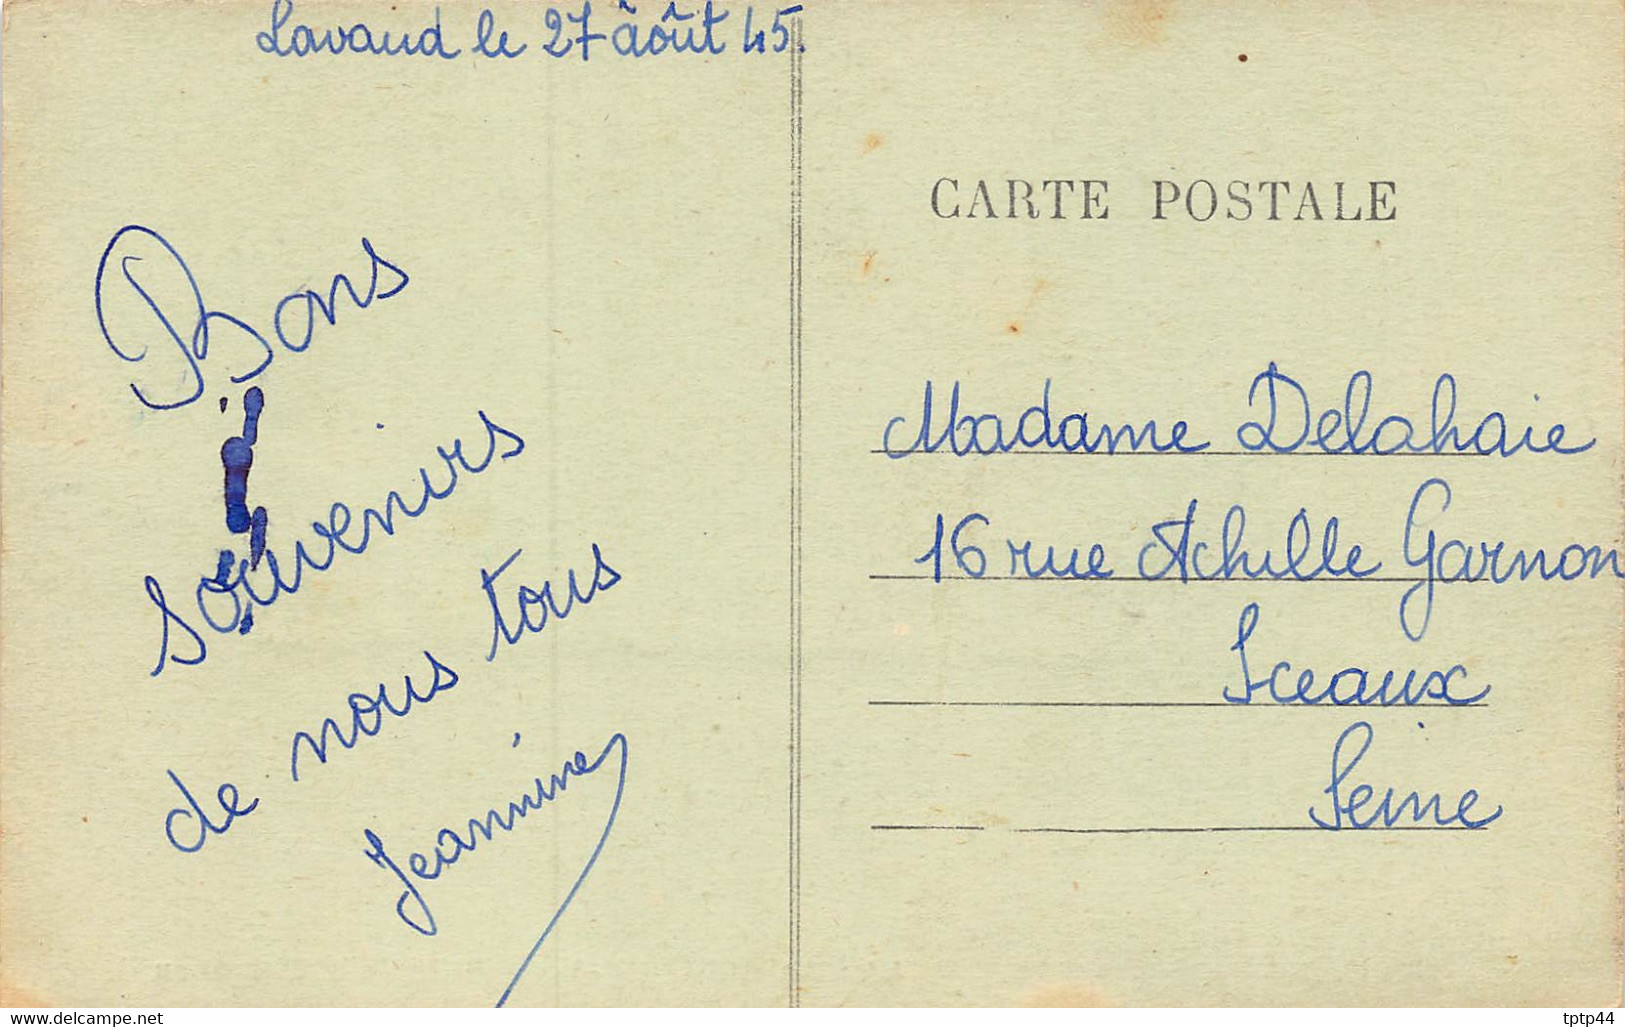 Lavaud le 27 âôut 45.
Bons
souvenirs
de nous tous
Jeannine
CARTE POSTALE
Madame Delahaie
16 rue Achille Garnon
Sceaux
Seine
www.delcampe.net
tptp44